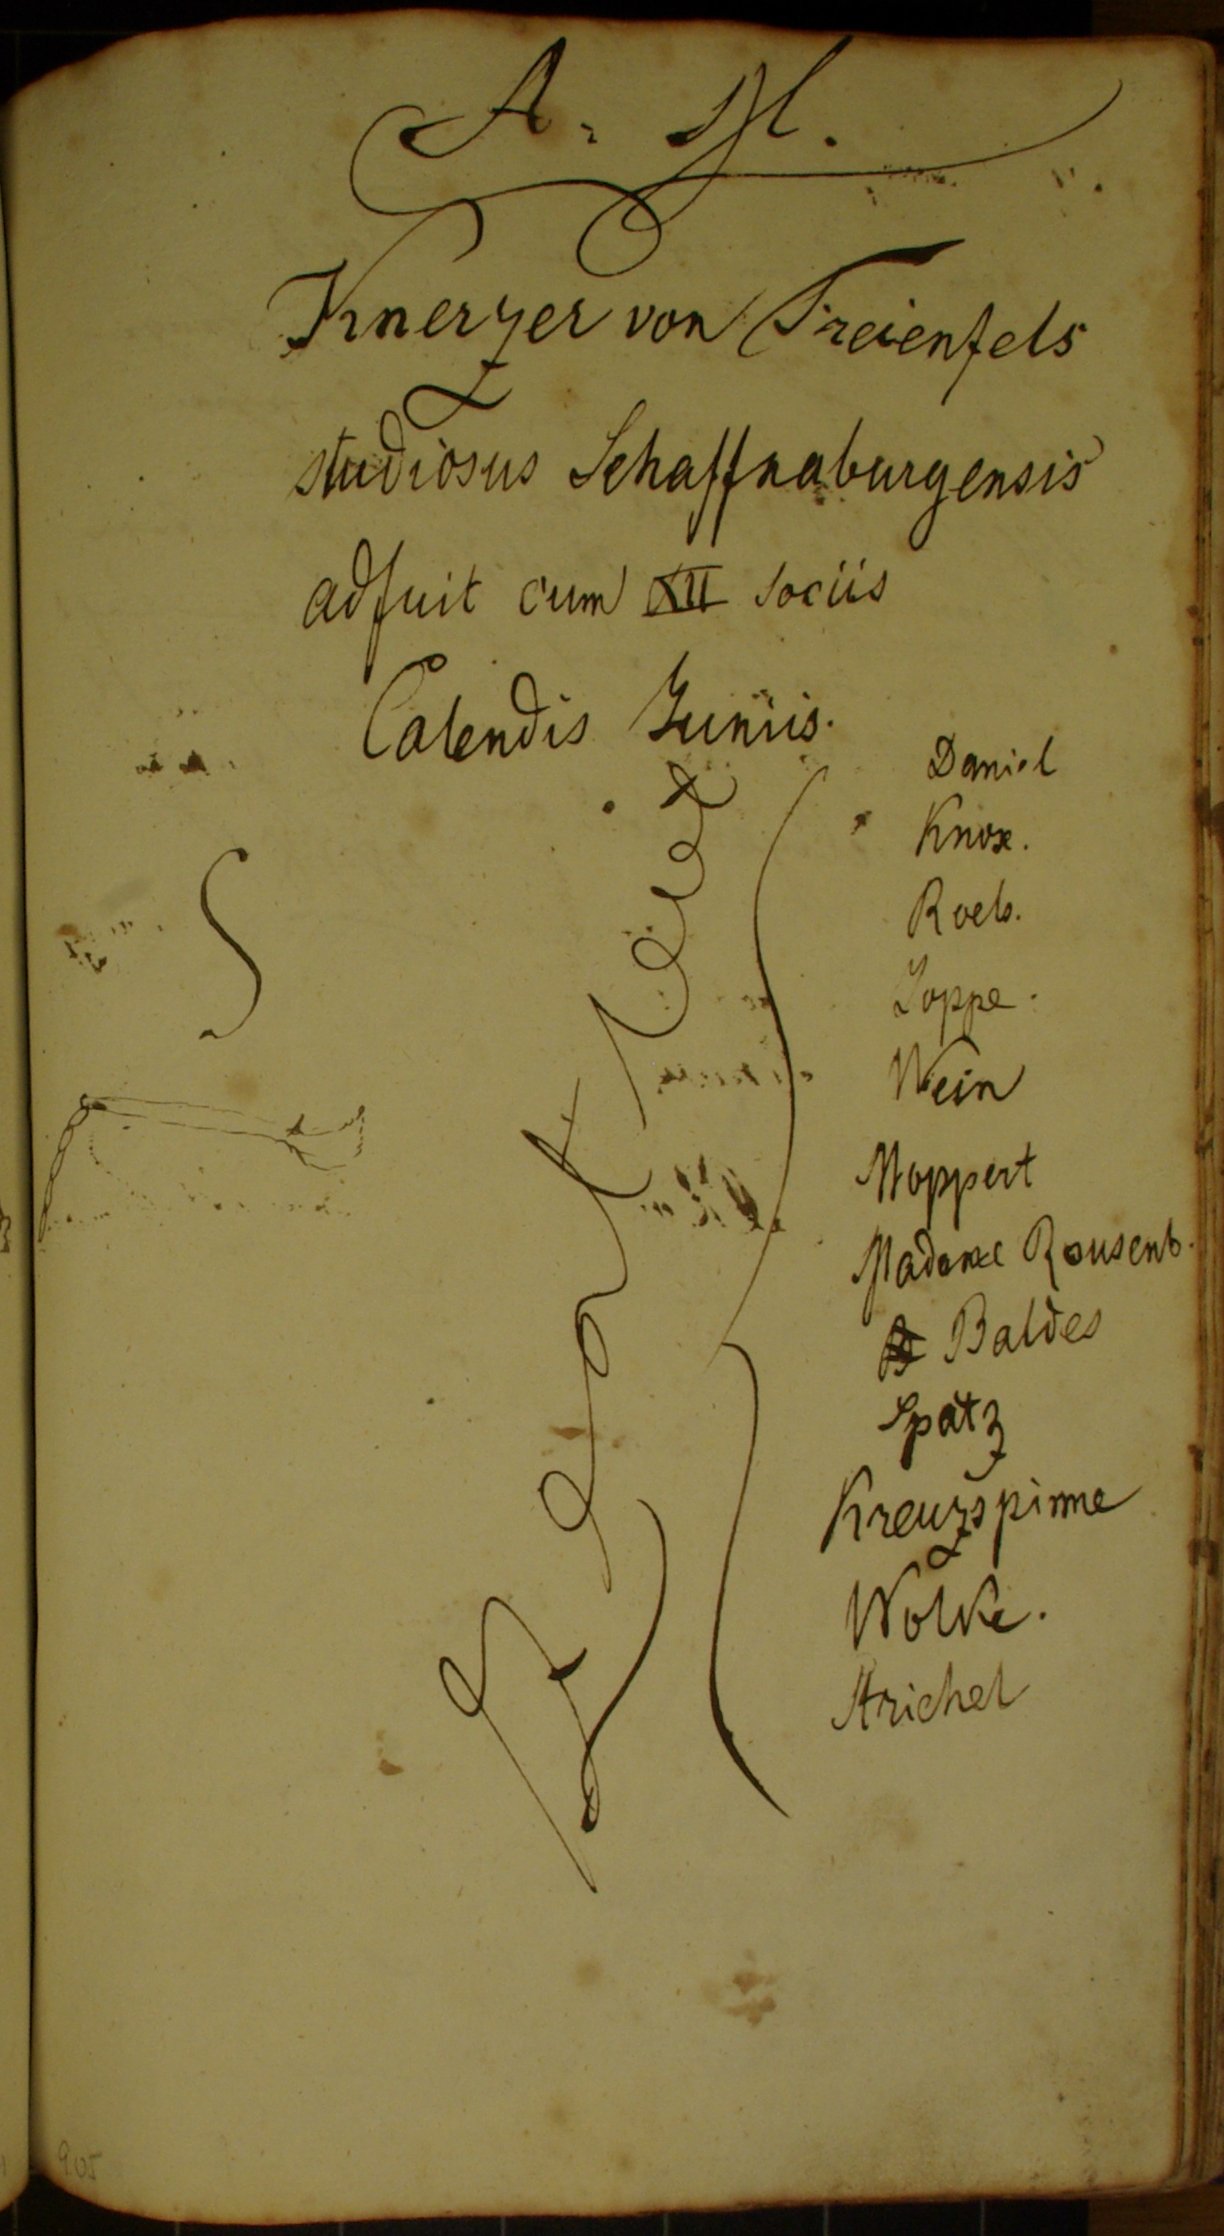 A. M.
Knerzer von Freienfels
studiosus Schaffnaburgensis
adfuit cum XII sociis
Calendis Juniis.
Daniel
Knox.
Roels.
Joppe.
Wein
Moppert
Madame Rousenb.
Baldes
Spatz
Kreuzspinne
Wolke.
Strichel
905